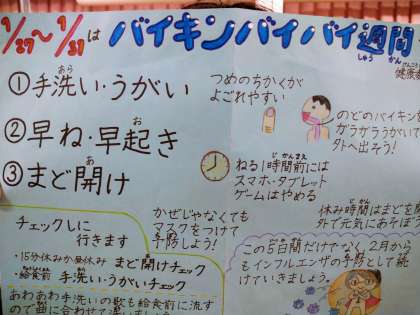 1/27〜1/31は バイキンバイバイ週間
しゅう かん
① 手洗い・うがい
あら
つめのちかくが
よごれやすい
のどのバイキン
ガラガラうがいで
外へ出そう!
② 早ね・早起き
お
ねる1時間前には
じ かんまえ
スマホ・タブレット
ゲームはやめる
③ まど開け
あ
かぜじゃなくても
マスクをつけて
予防しよう!
休み時間はまどを
外で元気にあそぼう
チェックしに
行きます
・15分休みか昼休み まど開けチェック
・給食前 手洗い・うがいチェック
あわあわ手洗いの歌も給食前に流す
ので曲に合わせて
この5日間だけでなく、2月から
もインフルエンザの予防として続
けていきましょう。